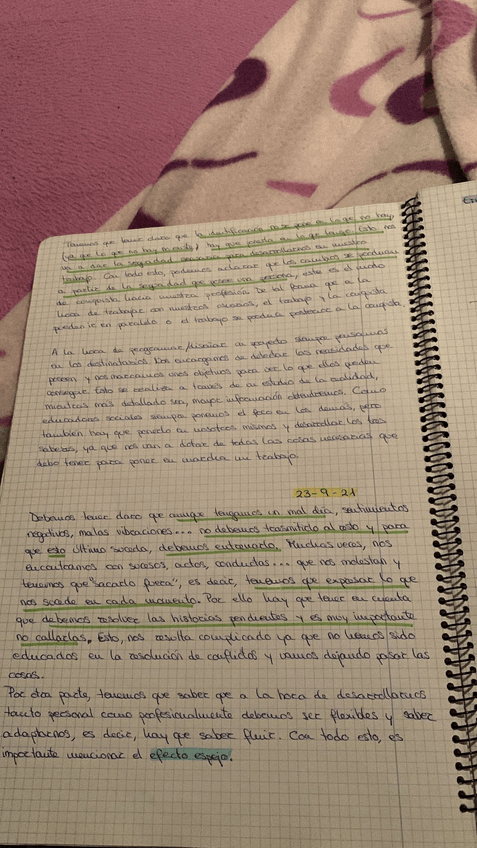 Tenemos que tener claro que la identificación no se pone en lo que no hay,
(ya que lo que no hay no está) hay que ponerla en lo que tengo. Esto nos
va a dar la seguridad necesaria para desarrollarnos en nuestro
trabajo. Con todo esto, podemos aclarar que los cambios se producen
a partir de la seguridad que posee una persona, este es el modo
de conquista hacia nuestra profesión. De tal forma que a la
hora de trabajar con nuestros usuarios, el trabajo y la conquista
pueden ir en paralelo o el trabajo se produce posterior a la conquista.
A la hora de programar/diseñar un proyecto siempre pensamos
en los destinatarios. Nos encargamos de detectar las necesidades que
poseen y nos marcamos unos objetivos para ver lo que ellos pueden
conseguir. Esto se realiza a través de un estudio de la realidad,
mientras más detallado sea, mayor información obtendremos. Como
educadores sociales siempre ponemos el foco en los demás, pero
también hay que ponerlo en nosotros mismos y desarrollar los tres
saberes, ya que nos van a dotar de todas las cosas necesarias que
debo tener para poner en marcha un trabajo.
23-9-21
Debemos tener claro que aunque tengamos un mal día, sentimientos
negativos, malas vibraciones... no debemos trasmitirlo al resto y para
que esto último suceda, debemos entrenarlo. Muchas veces, nos
encontramos con sucesos, actos, conductas... que nos molestan y
tenemos que "sacarlo fuera", es decir, tenemos que expresar lo que
nos sucede en cada momento. Por ello hay que tener en cuenta
que debemos resolver las historias pendientes y es muy importante
no callarlas. Esto, nos resulta complicado ya que no hemos sido
educados en la resolución de conflictos y vamos dejando pasar las
cosas.
Por otra parte, tenemos que saber que a la hora de desarrollarnos
tanto personal como profesionalmente debemos ser flexibles y saber
adaptarnos, es decir, hay que saber fluir. Con todo esto, es
importante mencionar el efecto espejo.